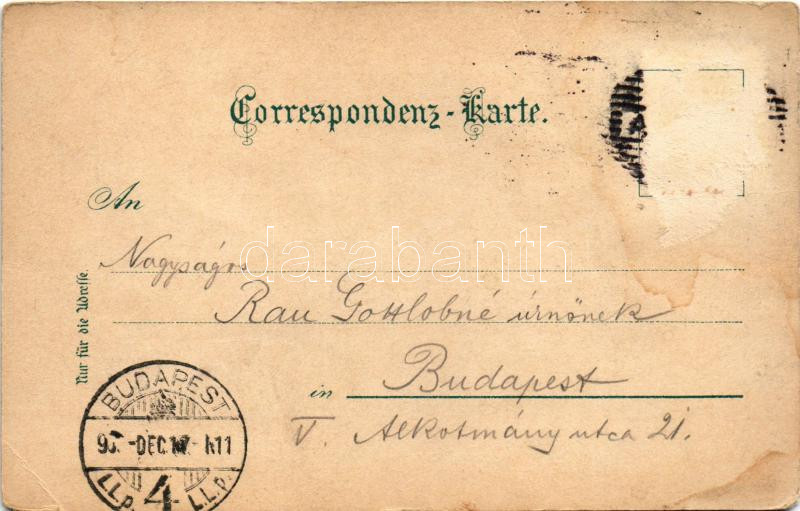 Correspondenz-Karte.
An
Nagyságos
Rau Gottlobné úrnőnek
in Budapest
V. Alkotmány utca 21.
Nur für die Adresse.
BUDAPEST
DEC
4
darabanth